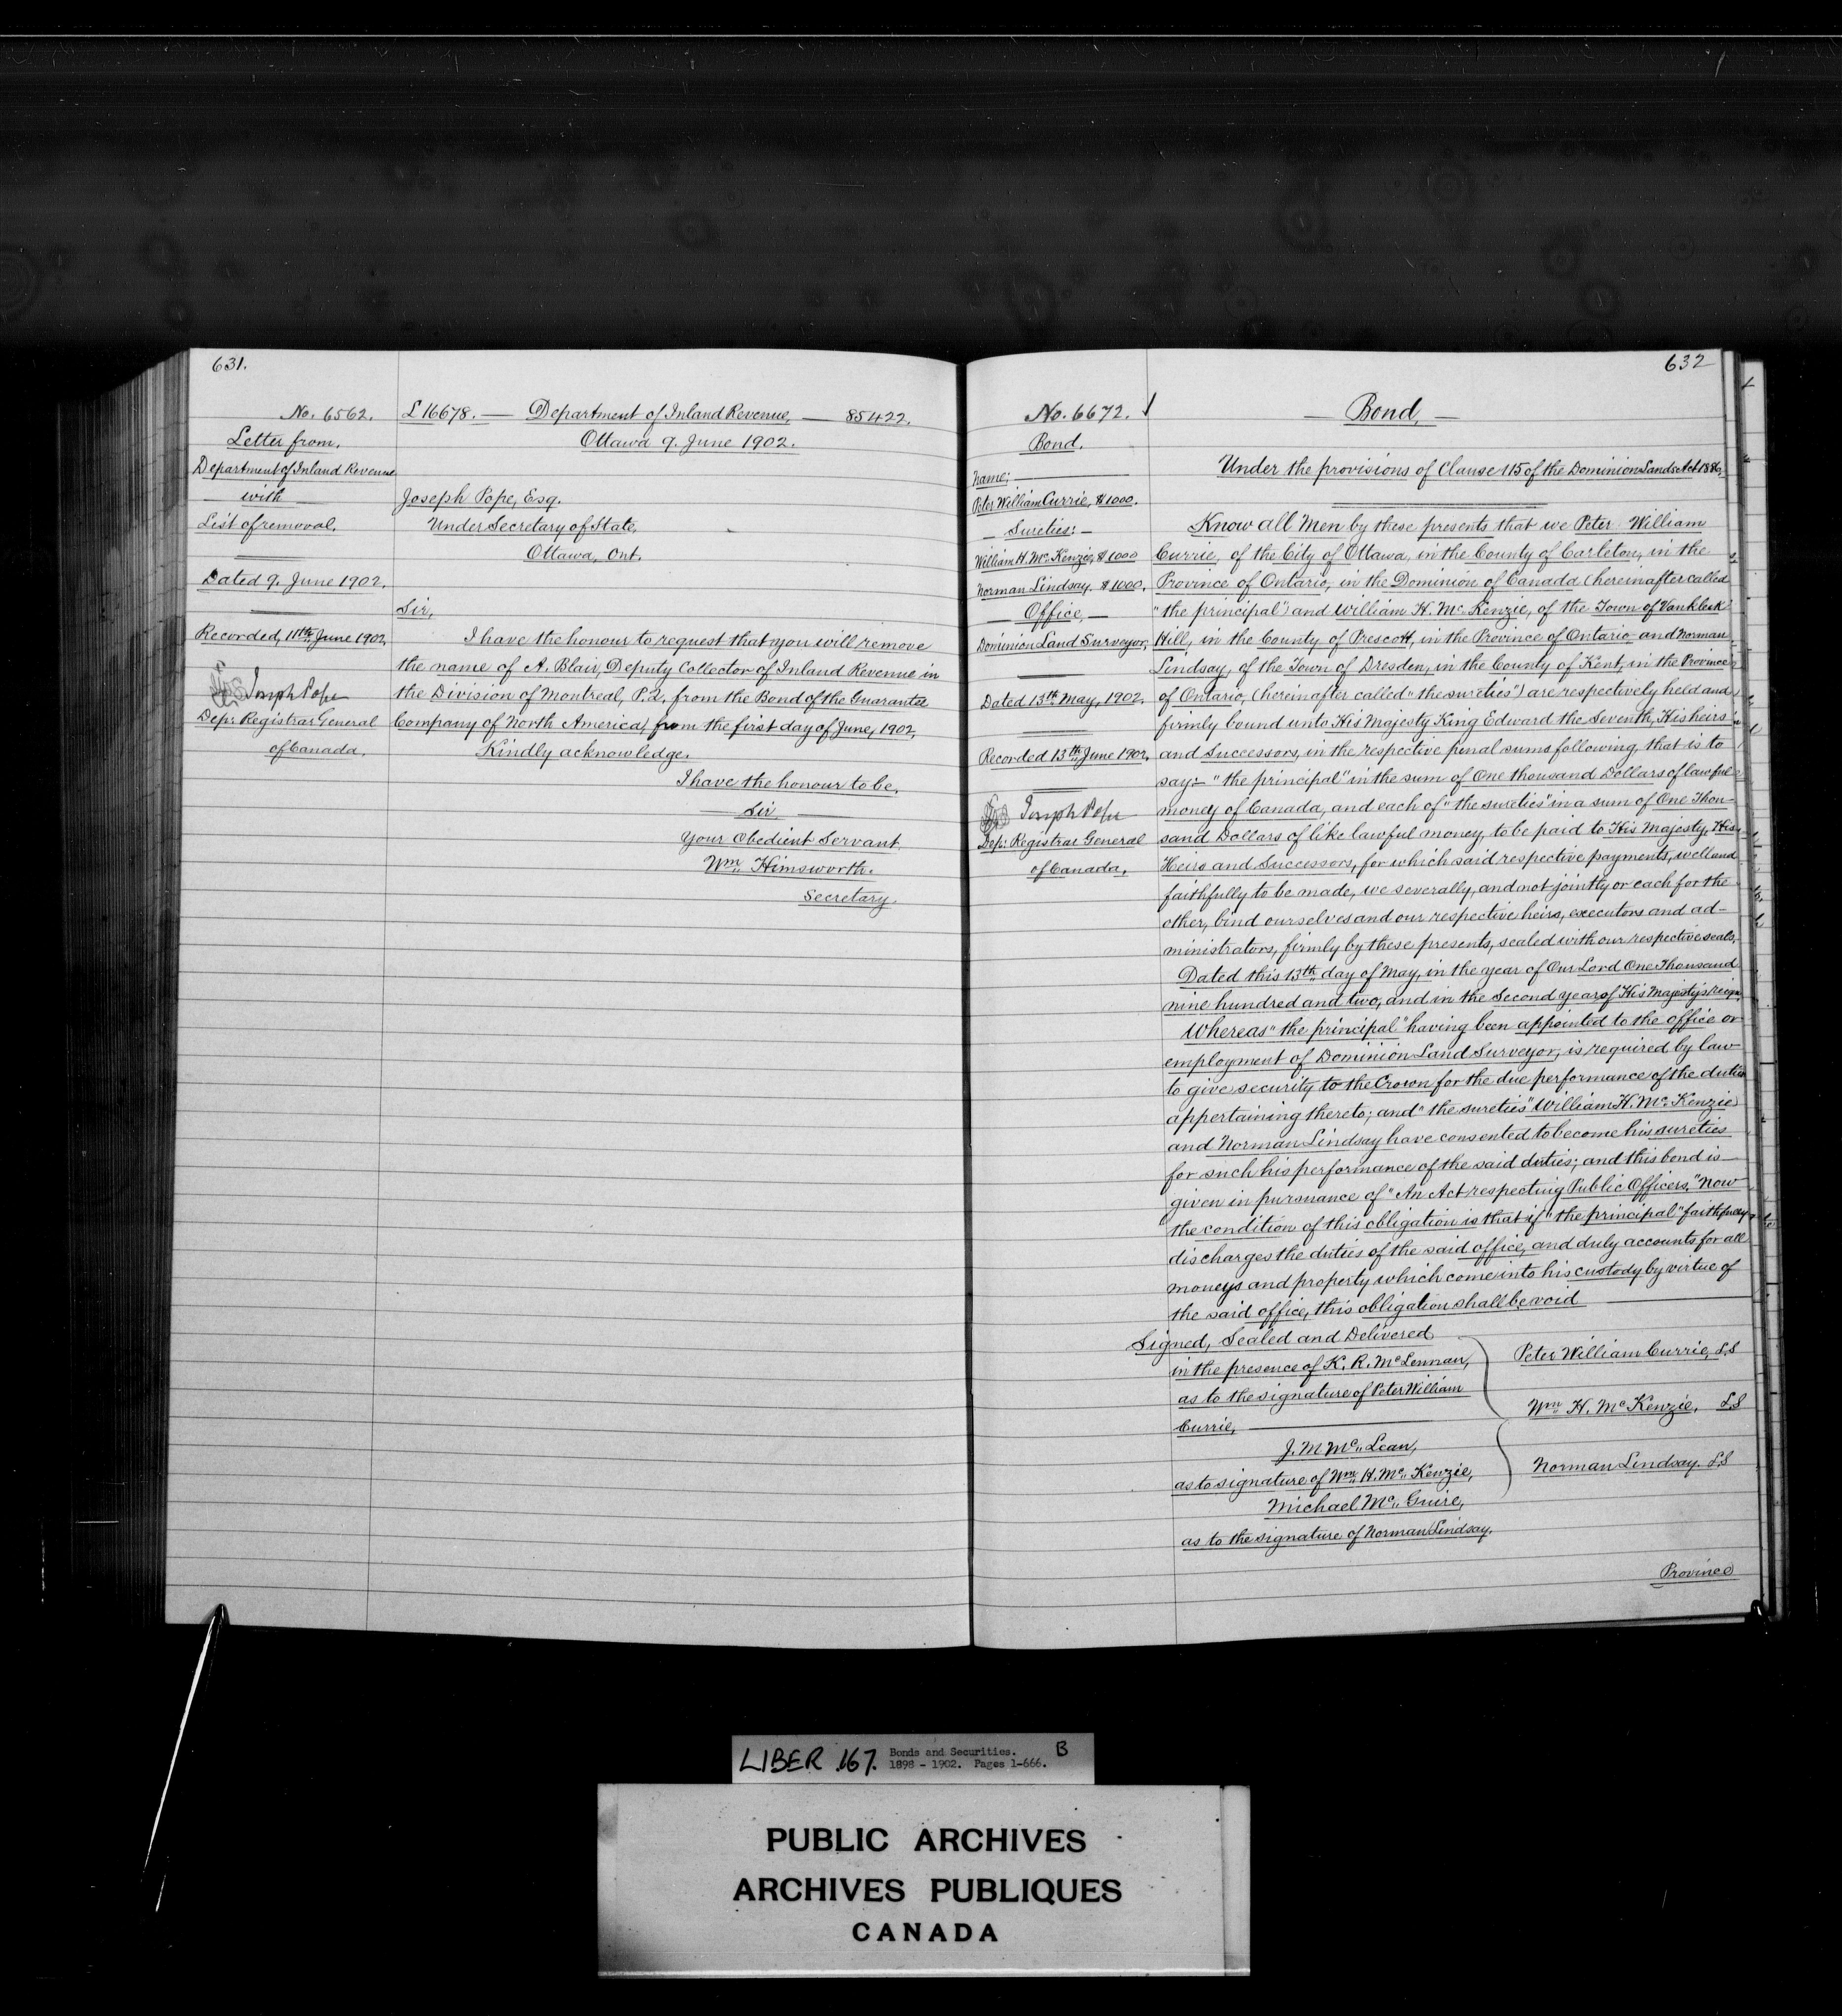 631.
No. 6562.
Letter from,
Department of Inland Revenue
with
List of removal.
Dated 9. June 1902.
Recorded, 11th June 1902.
Joseph Pope
Dep: Registrar General
of Canada.
L 16678. — Department of Inland Revenue, — 85422.
Ottawa 9. June 1902.
Joseph Pope, Esq.
Under Secretary of State,
Ottawa, Ont.
Sir,
I have the honour to request that you will remove
the name of A. Blair, Deputy Collector of Inland Revenue in
the Division of Montreal, P.2. from the Bond of the Guarantee
Company of North America, from the first day of June, 1902,
Kindly acknowledge.
I have the honour to be,
Sir
Your Obedient Servant
Wm Himsworth.
Secretary.
632
No. 6672.
Bond.
Name;
Peter William Currie, $1000.
— Sureties: —
William H. Mc Kenzie, $1000
Norman Lindsay. $1000.
— Office, —
Dominion Land Surveyor,
Dated 13th May, 1902.
Recorded 13th June 1902.
Joseph Pope
Dep: Registrar General
of Canada,
— Bond, —
Under the provisions of Clause 115 of the Dominion Lands Act 1886,
Know all Men by these presents that we Peter William
Currie, of the City of Ottawa, in the County of Carleton, in the
Province of Ontario, in the Dominion of Canada (hereinafter called
"the principal") and William H. Mc Kenzie, of the Town of Vankleek
Hill, in the County of Prescott, in the Province of Ontario and Norman
Lindsay, of the Town of Dresden, in the County of Kent, in the Province
of Ontario, (hereinafter called "the sureties") are respectively held and
firmly bound unto His Majesty King Edward the Seventh, His heirs
and Successors, in the respective penal sums following, that is to
say:- "the principal" in the sum of One thousand Dollars of lawful
money of Canada, and each of "the sureties" in a sum of One Thou-
sand Dollars of like lawful money, to be paid to His Majesty, His
Heirs and Successors, for which said respective payments, well and
faithfully to be made, we severally, and not jointly or each for the
other, bind ourselves and our respective heirs, executors and ad-
ministrators, firmly by these presents, sealed with our respective seals,
Dated this 13th day of May, in the year of Our Lord One Thousand
nine hundred and two, and in the Second year of His Majesty's reign,
Whereas "the principal" having been appointed to the office or
employment of Dominion Land Surveyor, is required by law
to give security to the Crown for the due performance of the duties
appertaining thereto; and "the sureties" William H. Mc Kenzie
and Norman Lindsay have consented to become his sureties
for such his performance of the said duties; and this bond is
given in pursuance of "An Act respecting Public Officers," Now
the condition of this obligation is that if "the principal" faithfully
discharges the duties of the said office, and duly accounts for all
moneys and property which come into his custody by virtue of
the said office, this obligation shall be void
Signed, Sealed and Delivered
in the presence of K. R. McLennan,
as to the signature of Peter William
Currie,
J. M Mc Lean,
as to signature of Wm H. Mc Kenzie,
Michael Mc Guire,
as to the signature of Norman Lindsay.
Peter William Currie, L.S
Wm H. Mc Kenzie, L.S
Norman Lindsay. L.S
Province
LIBER 167. Bonds and Securities. B
1898 - 1902. Pages 1-666.
PUBLIC ARCHIVES
ARCHIVES PUBLIQUES
CANADA